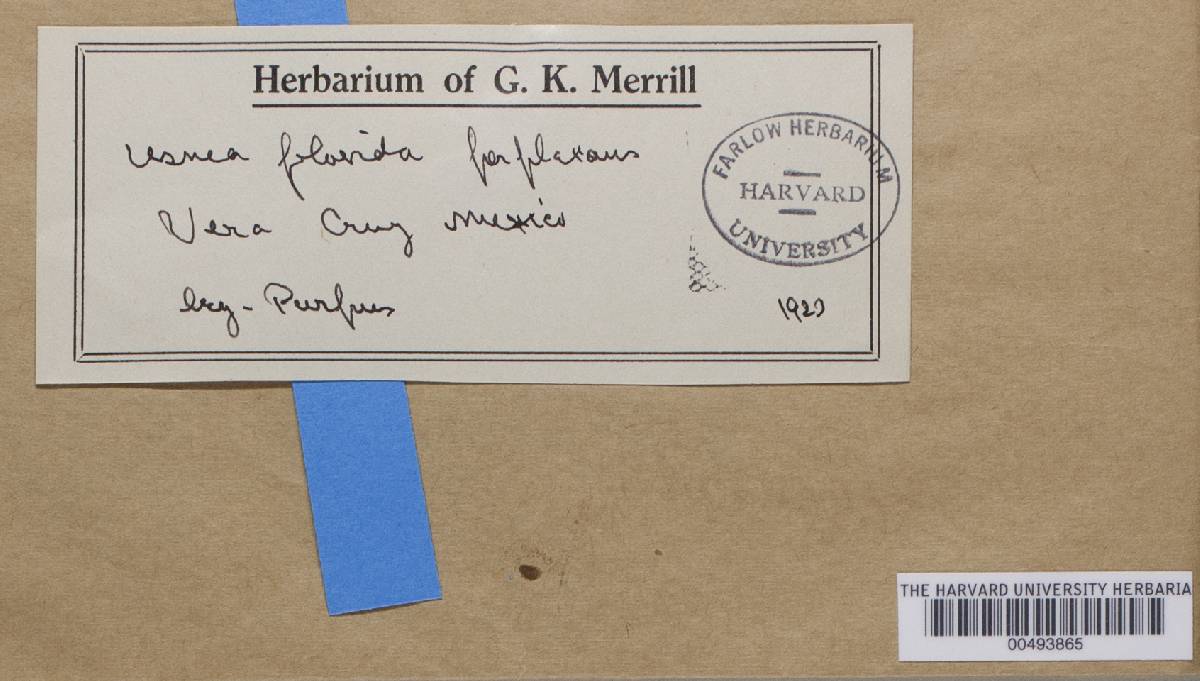 Herbarium of G. K. Merrill
Usnea florida perplexans
Vera Cruz Mexico
leg - Purpus
FARLOW HERBARIUM
HARVARD
UNIVERSITY
THE HARVARD UNIVERSITY HERBARIA
00493865